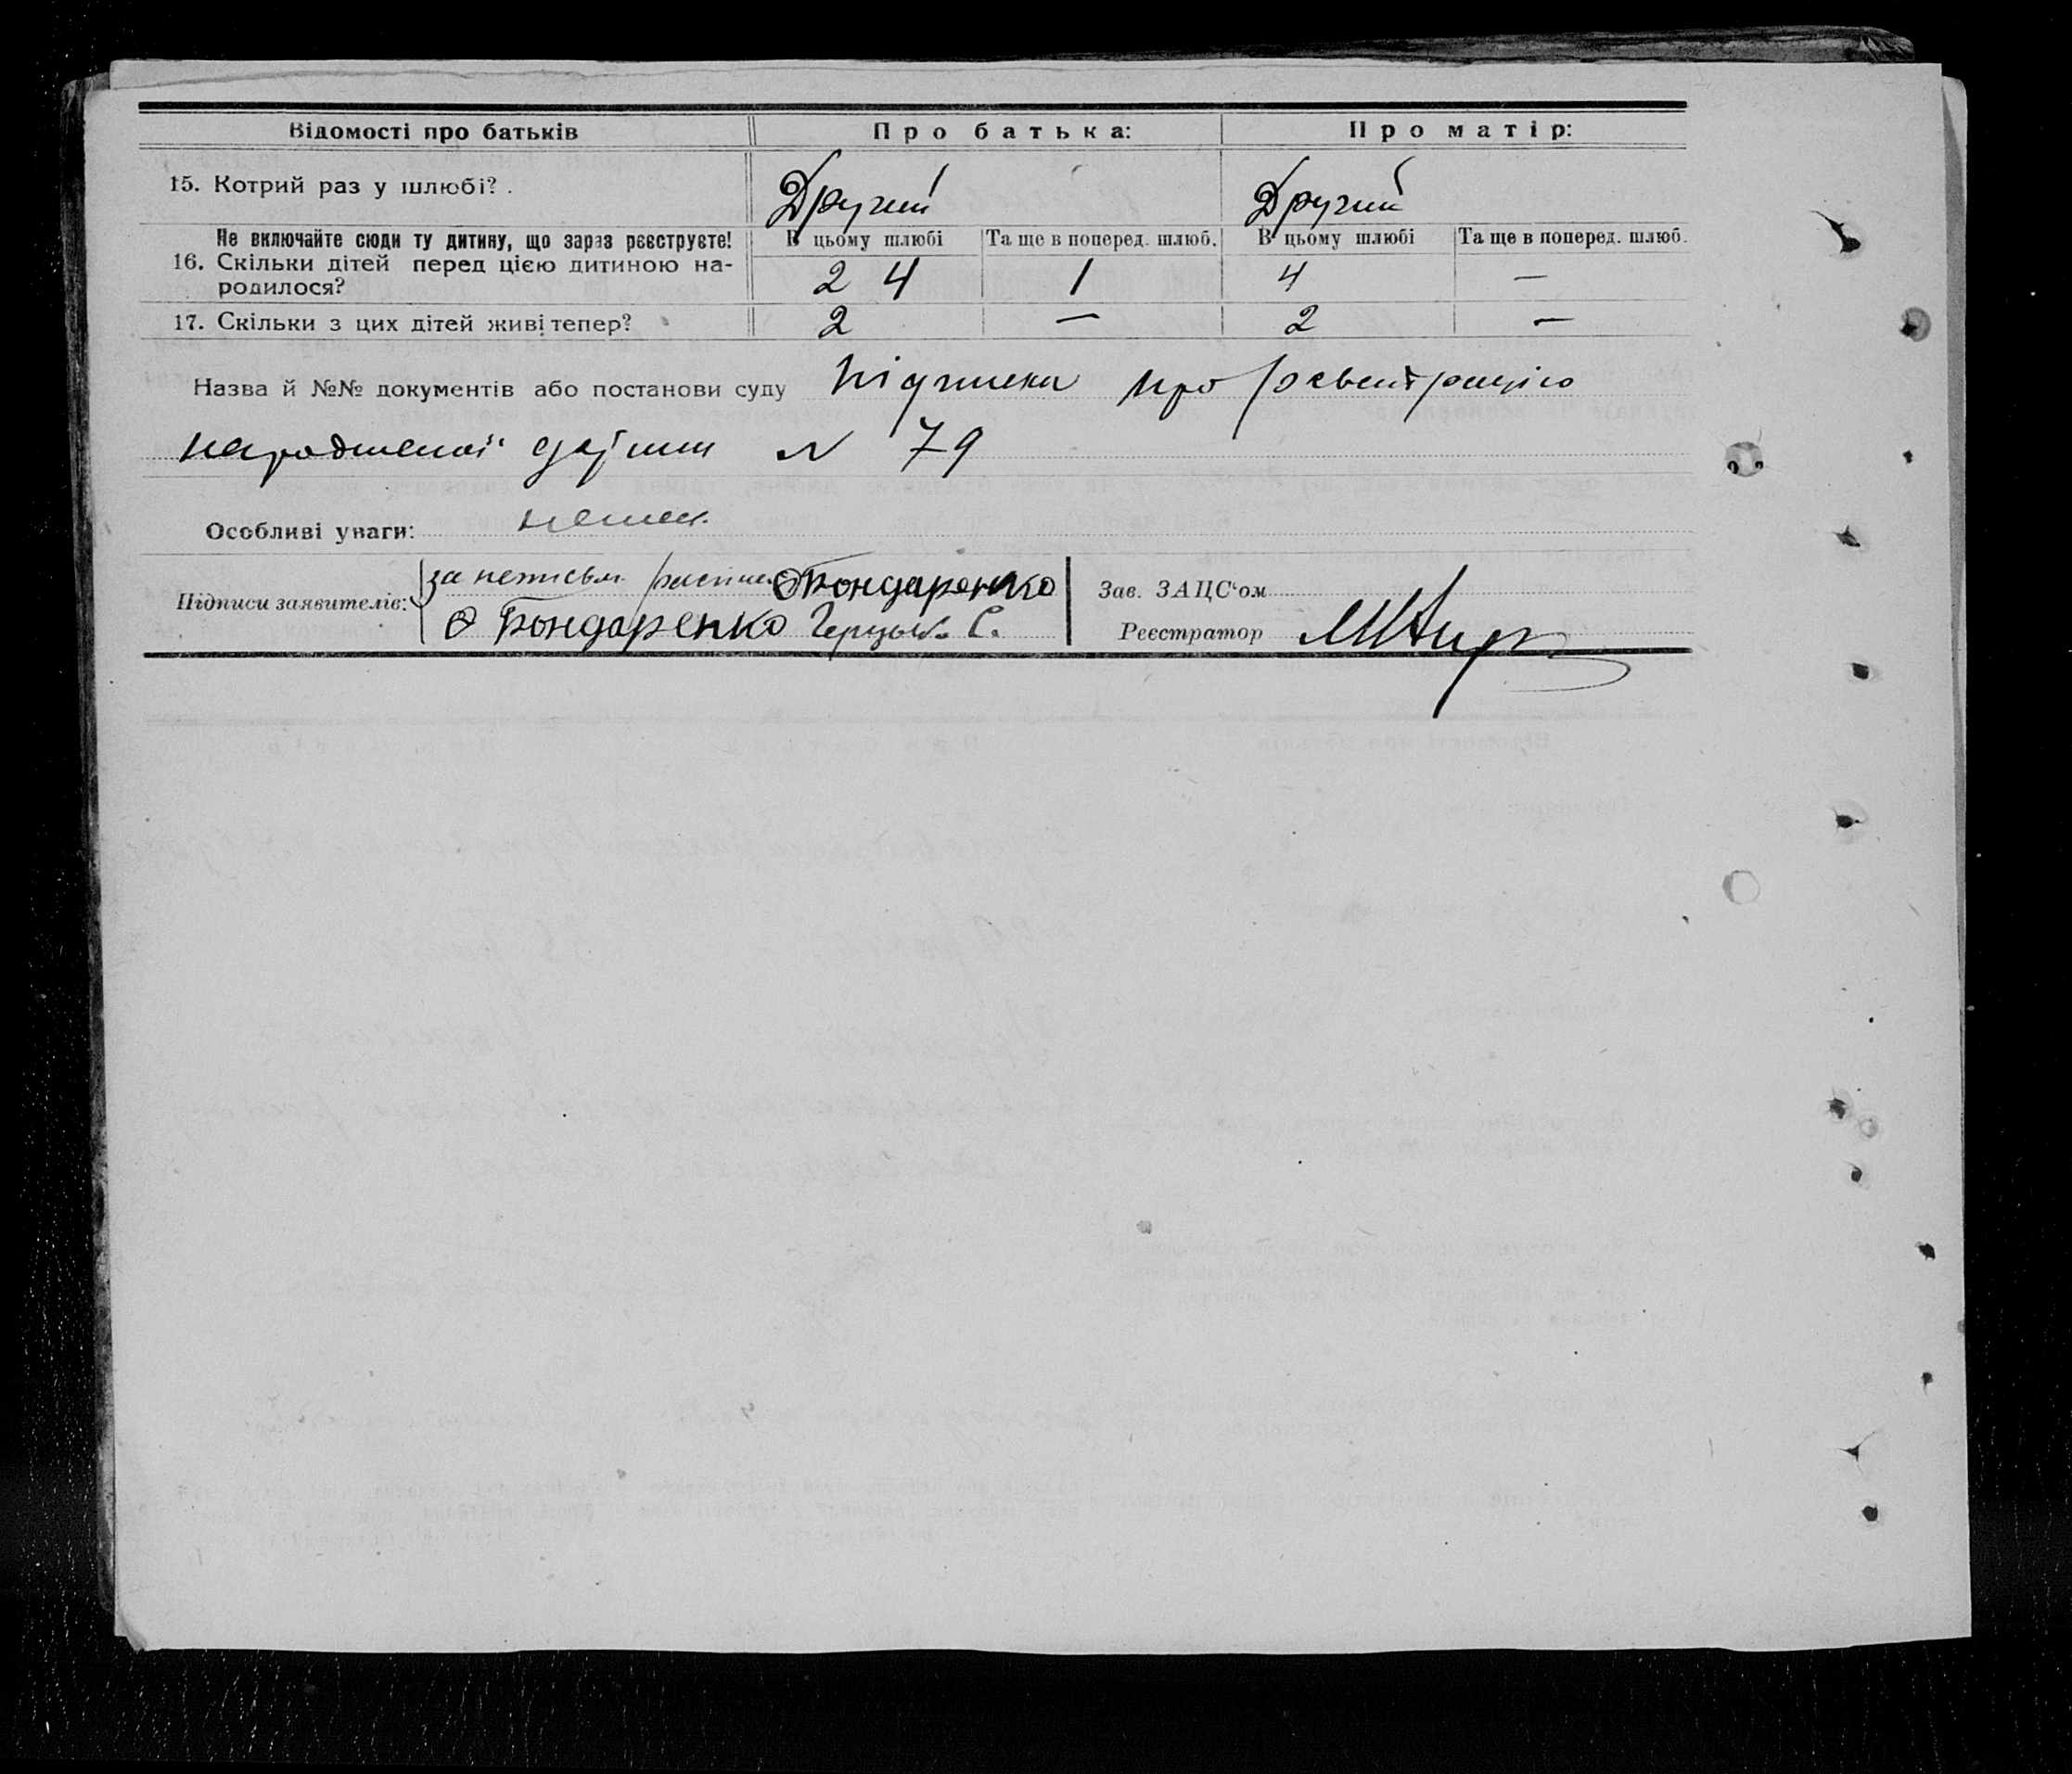 Відомості про батьків Про батька: Про матір:
15. Котрий раз у шлюбі? . Другий Другий
Не включайте сюди ту дитину, що зараз реєструєте! В цьому шлюбі Та ще в поперед. шлюб. В цьому шлюбі Та ще в поперед. шлюб.
16. Скільки дітей перед цією дитиною на-
родилося? 2 4 1 4 —
17. Скільки з цих дітей живі тепер? 2 — 2 —
Назва й №№ документів або постанови суду підписка про
народженої N 79
Особливі уваги: немає
Підписи заявителів: за неписьм. Бондаренко
Бондаренко С.
Зав. ЗАЦС'ом
Реєстратор